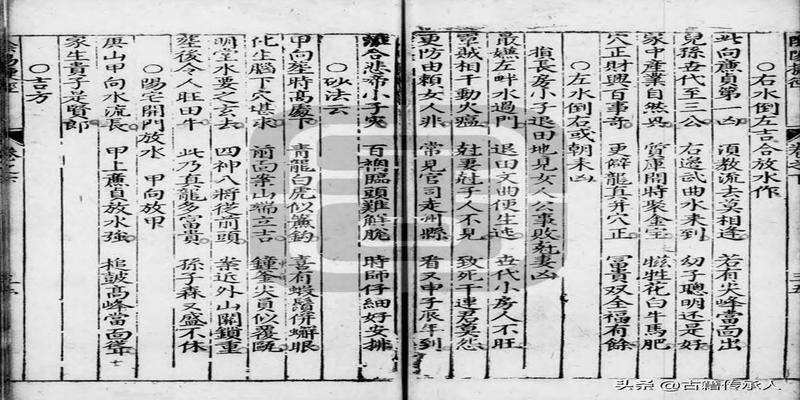 陰陽捷徑
卷之下
○右水倒左吉合放水作
此向廉貞第一凶 須教流去莫相逢 若有火峰當面出
兒孫世代至三公 右邊武曲水來到 幼子聰明还是好
家中產業自然興 質庫開時聚金宝 牺牲花白牛馬肥
穴正財興百事奇 更解龍真并穴正 冨貴双全福有餘
○左水倒右或朝來凶
指長房小子退田地見女人公事敗尅妻凶
最嫌左畔水過門 退田文曲便生迍 世代小房人不旺
冤賊相干動火瘟 尅妻尅子人不見 致死干連君莫怨
更防由賴女人非 常見官司走州縣 看又申子辰年到
離合悲啼小子灾 百禍臨頭難解脫 時師仔細好安排
○砂法云
甲向塋時高處下 青龍白虎似簾鈎 喜有蝦鬚併蠏眼
化生腦下穴堪求 前向案山端立吉 鐘釜尖員似覆甌
明堂水要之玄去 四神八將後前頭 案近外山闌鎖重
塋後令人旺田牛 此乃真龍多富貴 孫子森森又盛不休
○陽宅開門放水 甲向放甲
庚山甲向水流長 甲上廉貞放水強 搥皷高峰當面聳
家生貴子是賢郎
○吉方
陰陽捷徑
卷之下
头条 @古籍传承人